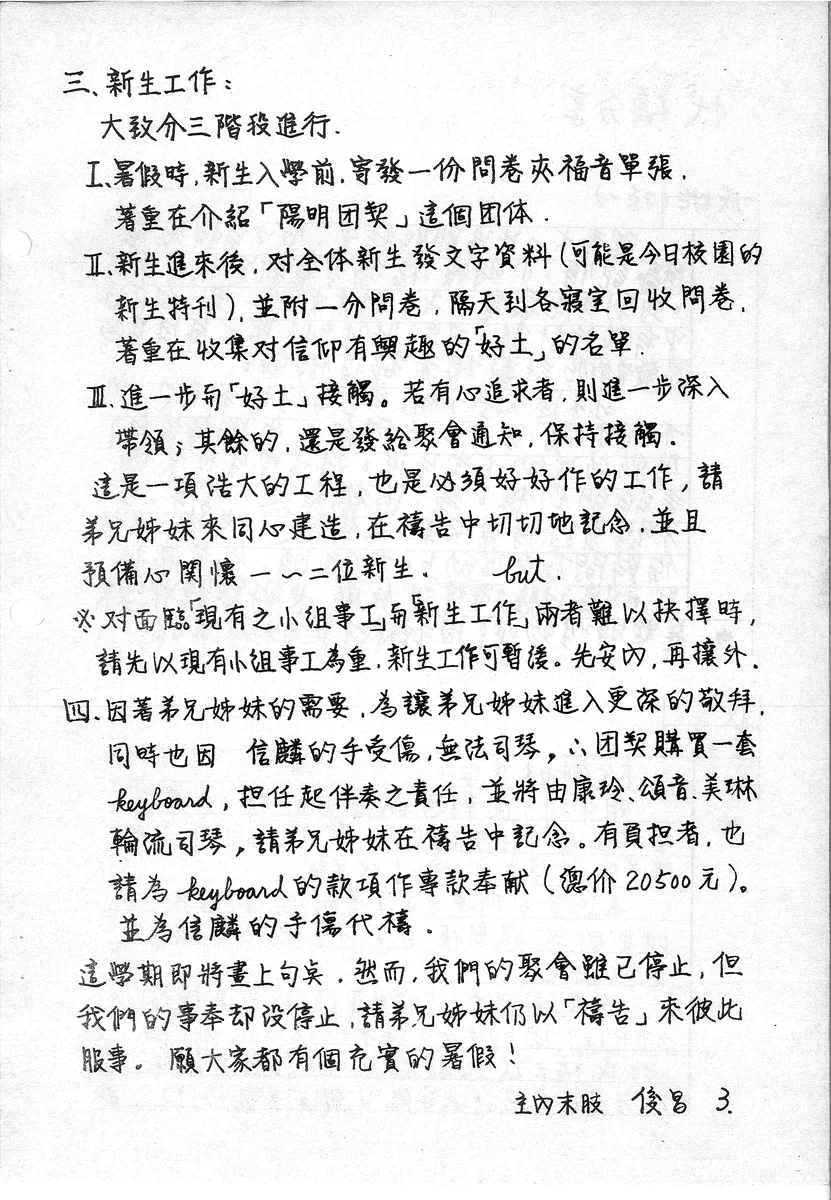 三、新生工作：
大致分三階段進行.
I、暑假時,新生入學前,寄發一份問卷夾福音單張.
著重在介紹「陽明团契」這個团体.
Ⅱ、新生進來後,对全体新生發文字資料(可能是今日校園的
新生特刊),並附一分問卷,隔天到各寢室回收問卷,
著重在收集对信仰有興趣的「好土」的名單.
Ⅲ、進一步而「好土」接觸。若有心追求者,則進一步深入
帶領；其餘的,還是發給聚會通知,保持接觸.
這是一項浩大的工程,也是必須好好作的工作,請
弟兄姊妹來同心建造,在禱告中切切地記念,並且
預備心関懷一~二位新生. but.
※对面臨「現有之小組事工」而「新生工作」兩者難以抉擇時,
請先以現有小組事工為重,新生工作可暫後。先安內,再攘外.
四.因著弟兄姊妹的需要,為讓弟兄姊妹進入更深的敬拜,
同時也因 信麟的手受傷,無法司琴,∴团契購買一套
keyboard,担任起伴奏之責任,並將由康玲、頌音、美琳
輪流司琴,請弟兄姊妹在禱告中記念。有負担者,也
請為keyboard的款項作專款奉献(總价20500元)。
並為信麟的手傷代禱.
這學期即將畫上句点.然而,我們的聚會雖已停止,但
我們的事奉却没停止,請弟兄姊妹仍以「禱告」來彼此
服事。願大家都有個充實的暑假!
主內末肢 俊昌 3.